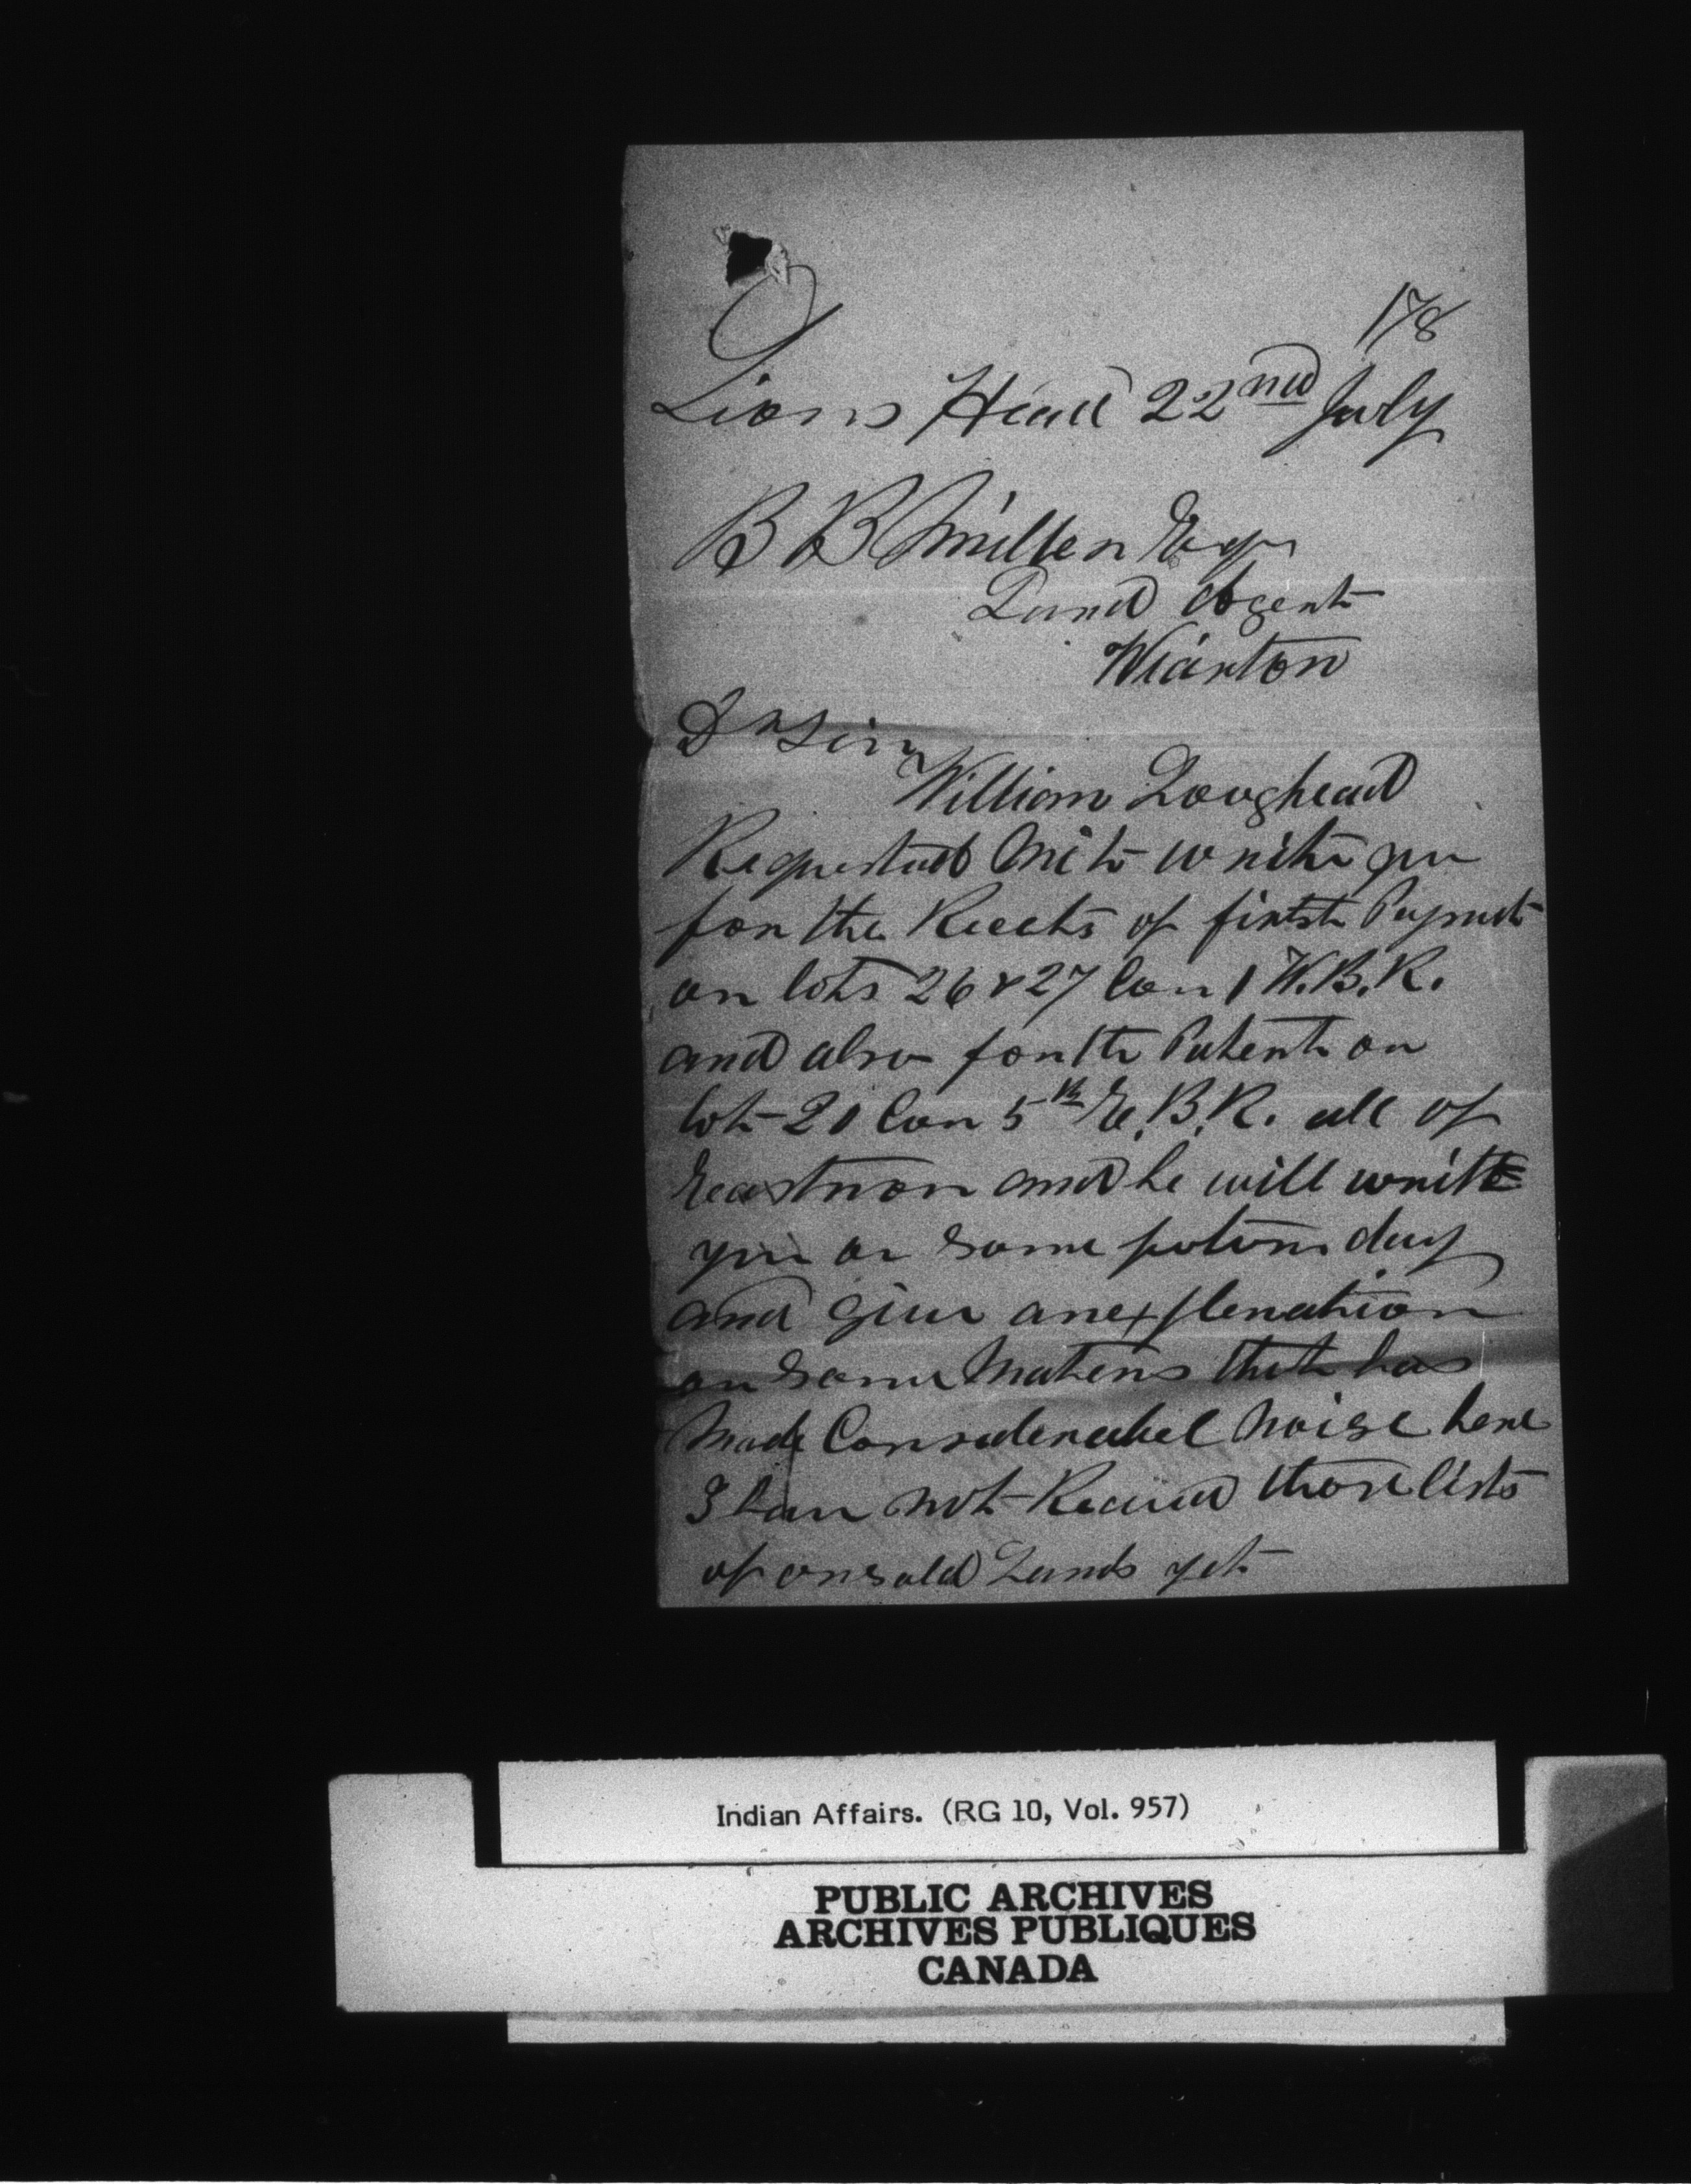 178
Lions Head 22nd July
B B Miller Esqr
Land Agent
Wiarton
Dr Sir
William Loughead
Requested Me to write you
for the Recets of first Paymet
on lots 26 & 27 Con 1 W.B.R.
and also for the Patent on
lot 20 Con 5th E.B.R. all of
Eastnor and he will write
you on some future day
and give an explenation
on some Maters that has
Made Considerabel Noise here
I have not Recived those lists
of onsold Lands yet
Indian Affairs. (RG 10, Vol. 957)
PUBLIC ARCHIVES
ARCHIVES PUBLIQUES
CANADA